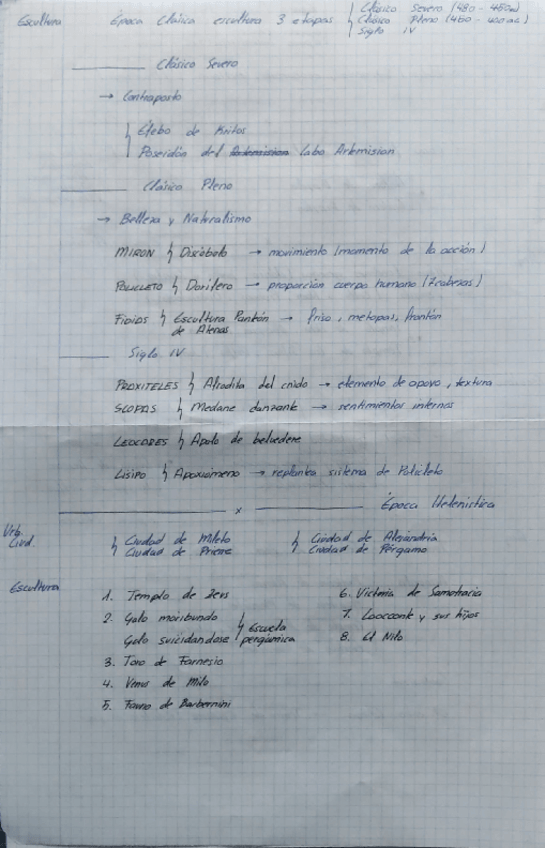 Escultura Época Clásica escultura 3 etapas
Clásico Severo (480-450
Clásico Pleno (450-400
Siglo IV
Clásico Severo
→ Contraposto
Éfebo de Kritos
Poseidón del Artemision Cabo Artemision
Clásico Pleno
→ Belleza y Naturalismo
MIRON Discóbolo → movimiento (momento de la acción)
POLICLETO Doríforo → proporción cuerpo humano (7 cabezas)
FIDIAS Escultura Partenón → friso, metopas, frontón
de Atenas
Siglo IV
PRAXITELES Afrodita del cnido → elemento de apoyo, textura
SCOPAS danzante → sentimientos internos
Apolo de belvedere
LISIPO Apoxiomeno → replantea sistema de Policleto
x Época Helenística
Urb.
Civd.
Ciudad de Mileto Ciudad de Alejandria
Ciudad de Priene Ciudad de Pérgamo
Escultura
1. Templo de Zeus 6. Victoria de Samotracia
2. Galo moribundo 7. y sus hijos
Galo suicidandose Escuela pergámica 8. El Nilo
3. Toro de Farnesio
4. Venus de Milo
5. Fauno de Barbernini